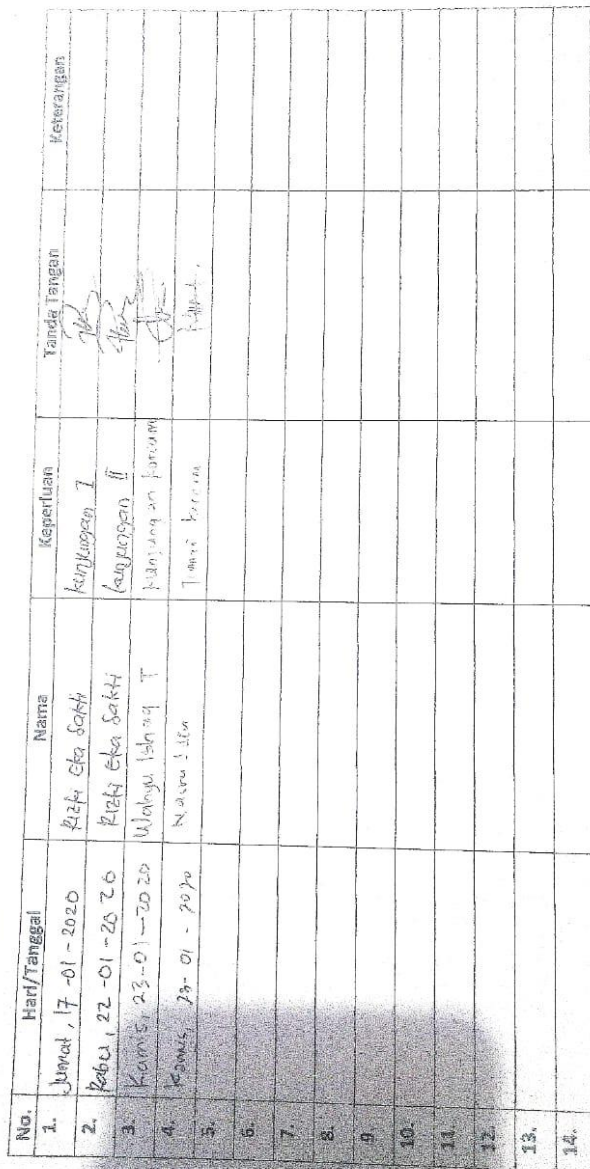 No. Hari/Tanggal Nama Keperluan Tanda Tangan Keterangan
1. Jumat, 17-01-2020 Rizki Eka Sakti Kunjungan I
2. Rabu, 22-01-2020 Rizki Eka Sakti Kunjungan II
3. Kamis, 23-01-2020 Wahyu T Kunjungan
4. Kamis, 23-01-2020
5.
6.
7.
8.
9
10.
11.
12.
13.
14.